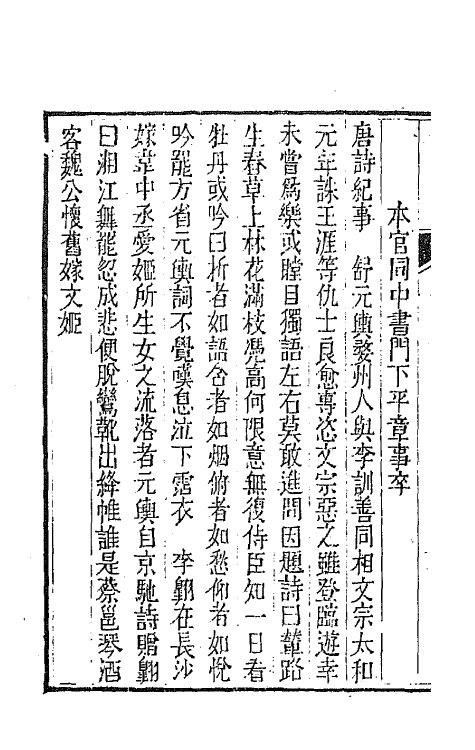 本官同中書門下平章事卒
唐詩紀事　舒元輿婺州人與李訓善同相文宗太和
元年誅王涯等仇士良愈專恣文宗惡之雖登臨遊幸
未嘗爲樂或瞠目獨語左右莫敢進問因題詩曰輦路
生春草上林花滿枝凭高何限意無復侍臣知一日看
牡丹或吟曰折者如語含者如烟俯者如愁仰者如悅
吟罷方省元輿詞不覺嘆息泣下霑衣　李翺在長沙
嫁韋中丞愛姬所生女之流落者元輿自京馳詩贈翺
曰湘江舞罷忽成悲便脫鸞靴出絳帷誰是蔡邕琴酒
客魏公懷舊嫁文姬